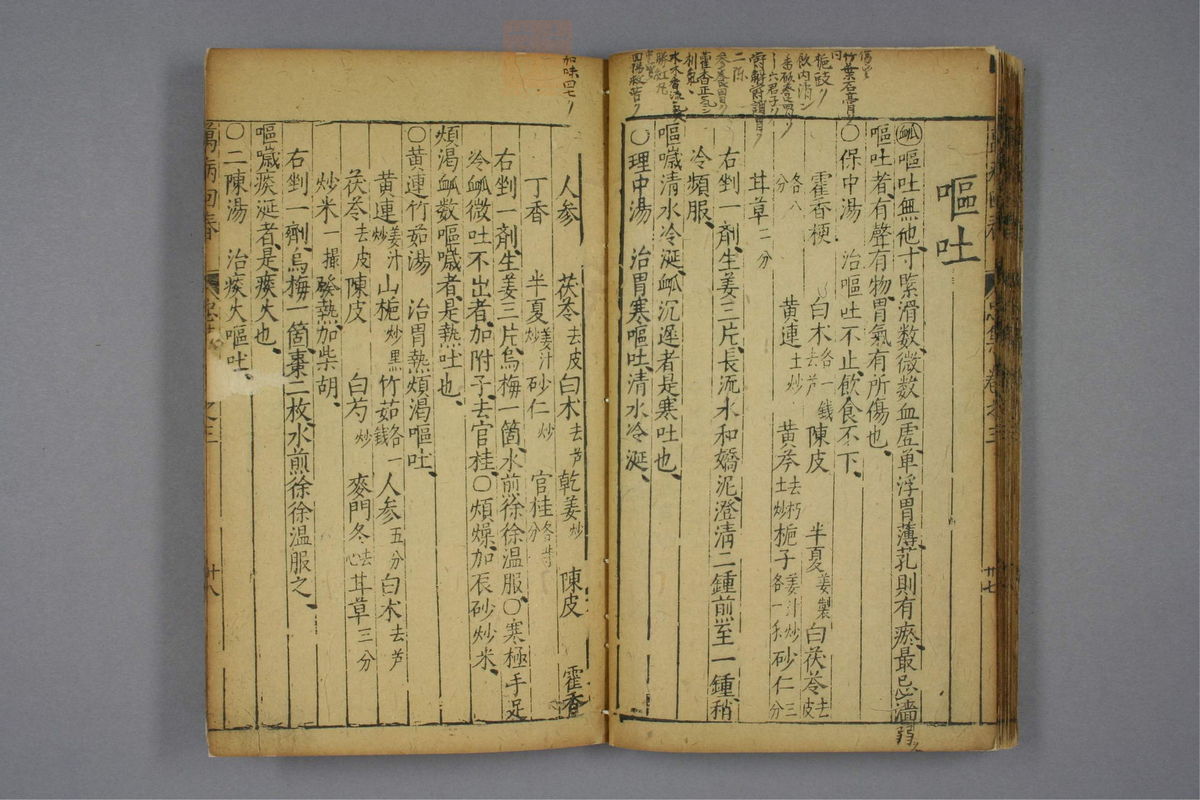 嘔吐
㊙嘔吐無他寸緊滑数微数血虚单浮胃薄芤則有瘀最忌濇弱
嘔吐者有聲有物胃氣有所傷也
○保中湯 治嘔吐不止飲食不下
藿香梗 白术各一錢去芦 陳皮 半夏姜製 白茯苓去皮
各八分 黄連土炒 黄芩去朽土炒 梔子姜汁炒各一錢 砂仁三分
甘草二分
右剉一劑生姜三片長流水和嬌泥澄清二鍾煎至一鍾稍
冷頻服
嘔噦清水冷涎脉沉遲者是寒吐也
○理中湯 治胃寒嘔吐清水冷涎
人参 茯苓去皮 白术去芦 乾姜炒 陳皮 藿香
丁香 半夏姜汁炒 砂仁炒 官桂各等分
右剉一劑生姜三片烏梅一箇水煎徐徐温服○寒極手足
冷脉微吐不出者加附子去官桂○煩燥加辰砂炒米
煩渴脉数嘔噦者是熱吐也
○黄連竹茹湯 治胃熱煩渴嘔吐
黄連姜汁炒 山梔炒黒 竹茹各一錢 人参五分 白术去芦
茯苓去皮 陳皮 白芍炒 麥門冬去心 甘草三分
炒米一撮 發熱加柴胡
右剉一劑烏梅一箇棗二枚水煎徐徐温服之
嘔噦痰涎者是痰火也
○二陳湯 治痰火嘔吐
萬病回春
之三
廿八
卷之三
廿七
竹葉石膏
梔豉
二陳
藿香正气
加味四七